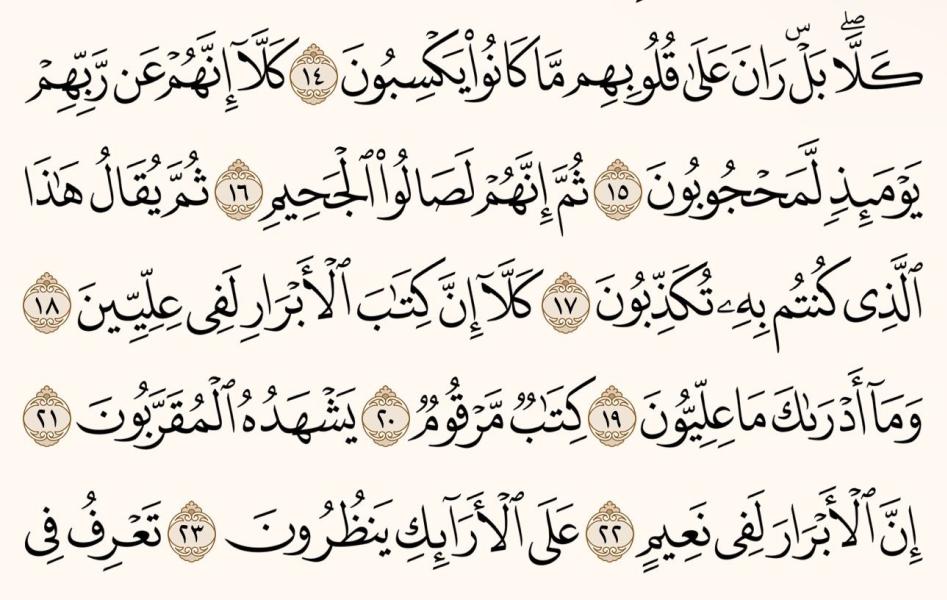 كَلَّاۖ بَلْۜ رَانَ عَلَىٰ قُلُوبِهِم مَّا كَانُوا۟ يَكْسِبُونَ ١٤ كَلَّآ إِنَّهُمْ عَن رَّبِّهِمْ
يَوْمَئِذٍ لَّمَحْجُوبُونَ ١٥ ثُمَّ إِنَّهُمْ لَصَالُوا۟ ٱلْجَحِيمِ ١٦ ثُمَّ يُقَالُ هَـٰذَا
ٱلَّذِى كُنتُم بِهِۦ تُكَذِّبُونَ ١٧ كَلَّآ إِنَّ كِتَـٰبَ ٱلْأَبْرَارِ لَفِى عِلِّيِّينَ ١٨
وَمَآ أَدْرَىٰكَ مَا عِلِّيُّونَ ١٩ كِتَـٰبٌ مَّرْقُومٌ ٢٠ يَشْهَدُهُ ٱلْمُقَرَّبُونَ ٢١
إِنَّ ٱلْأَبْرَارَ لَفِى نَعِيمٍ ٢٢ عَلَى ٱلْأَرَآئِكِ يَنظُرُونَ ٢٣ تَعْرِفُ فِى